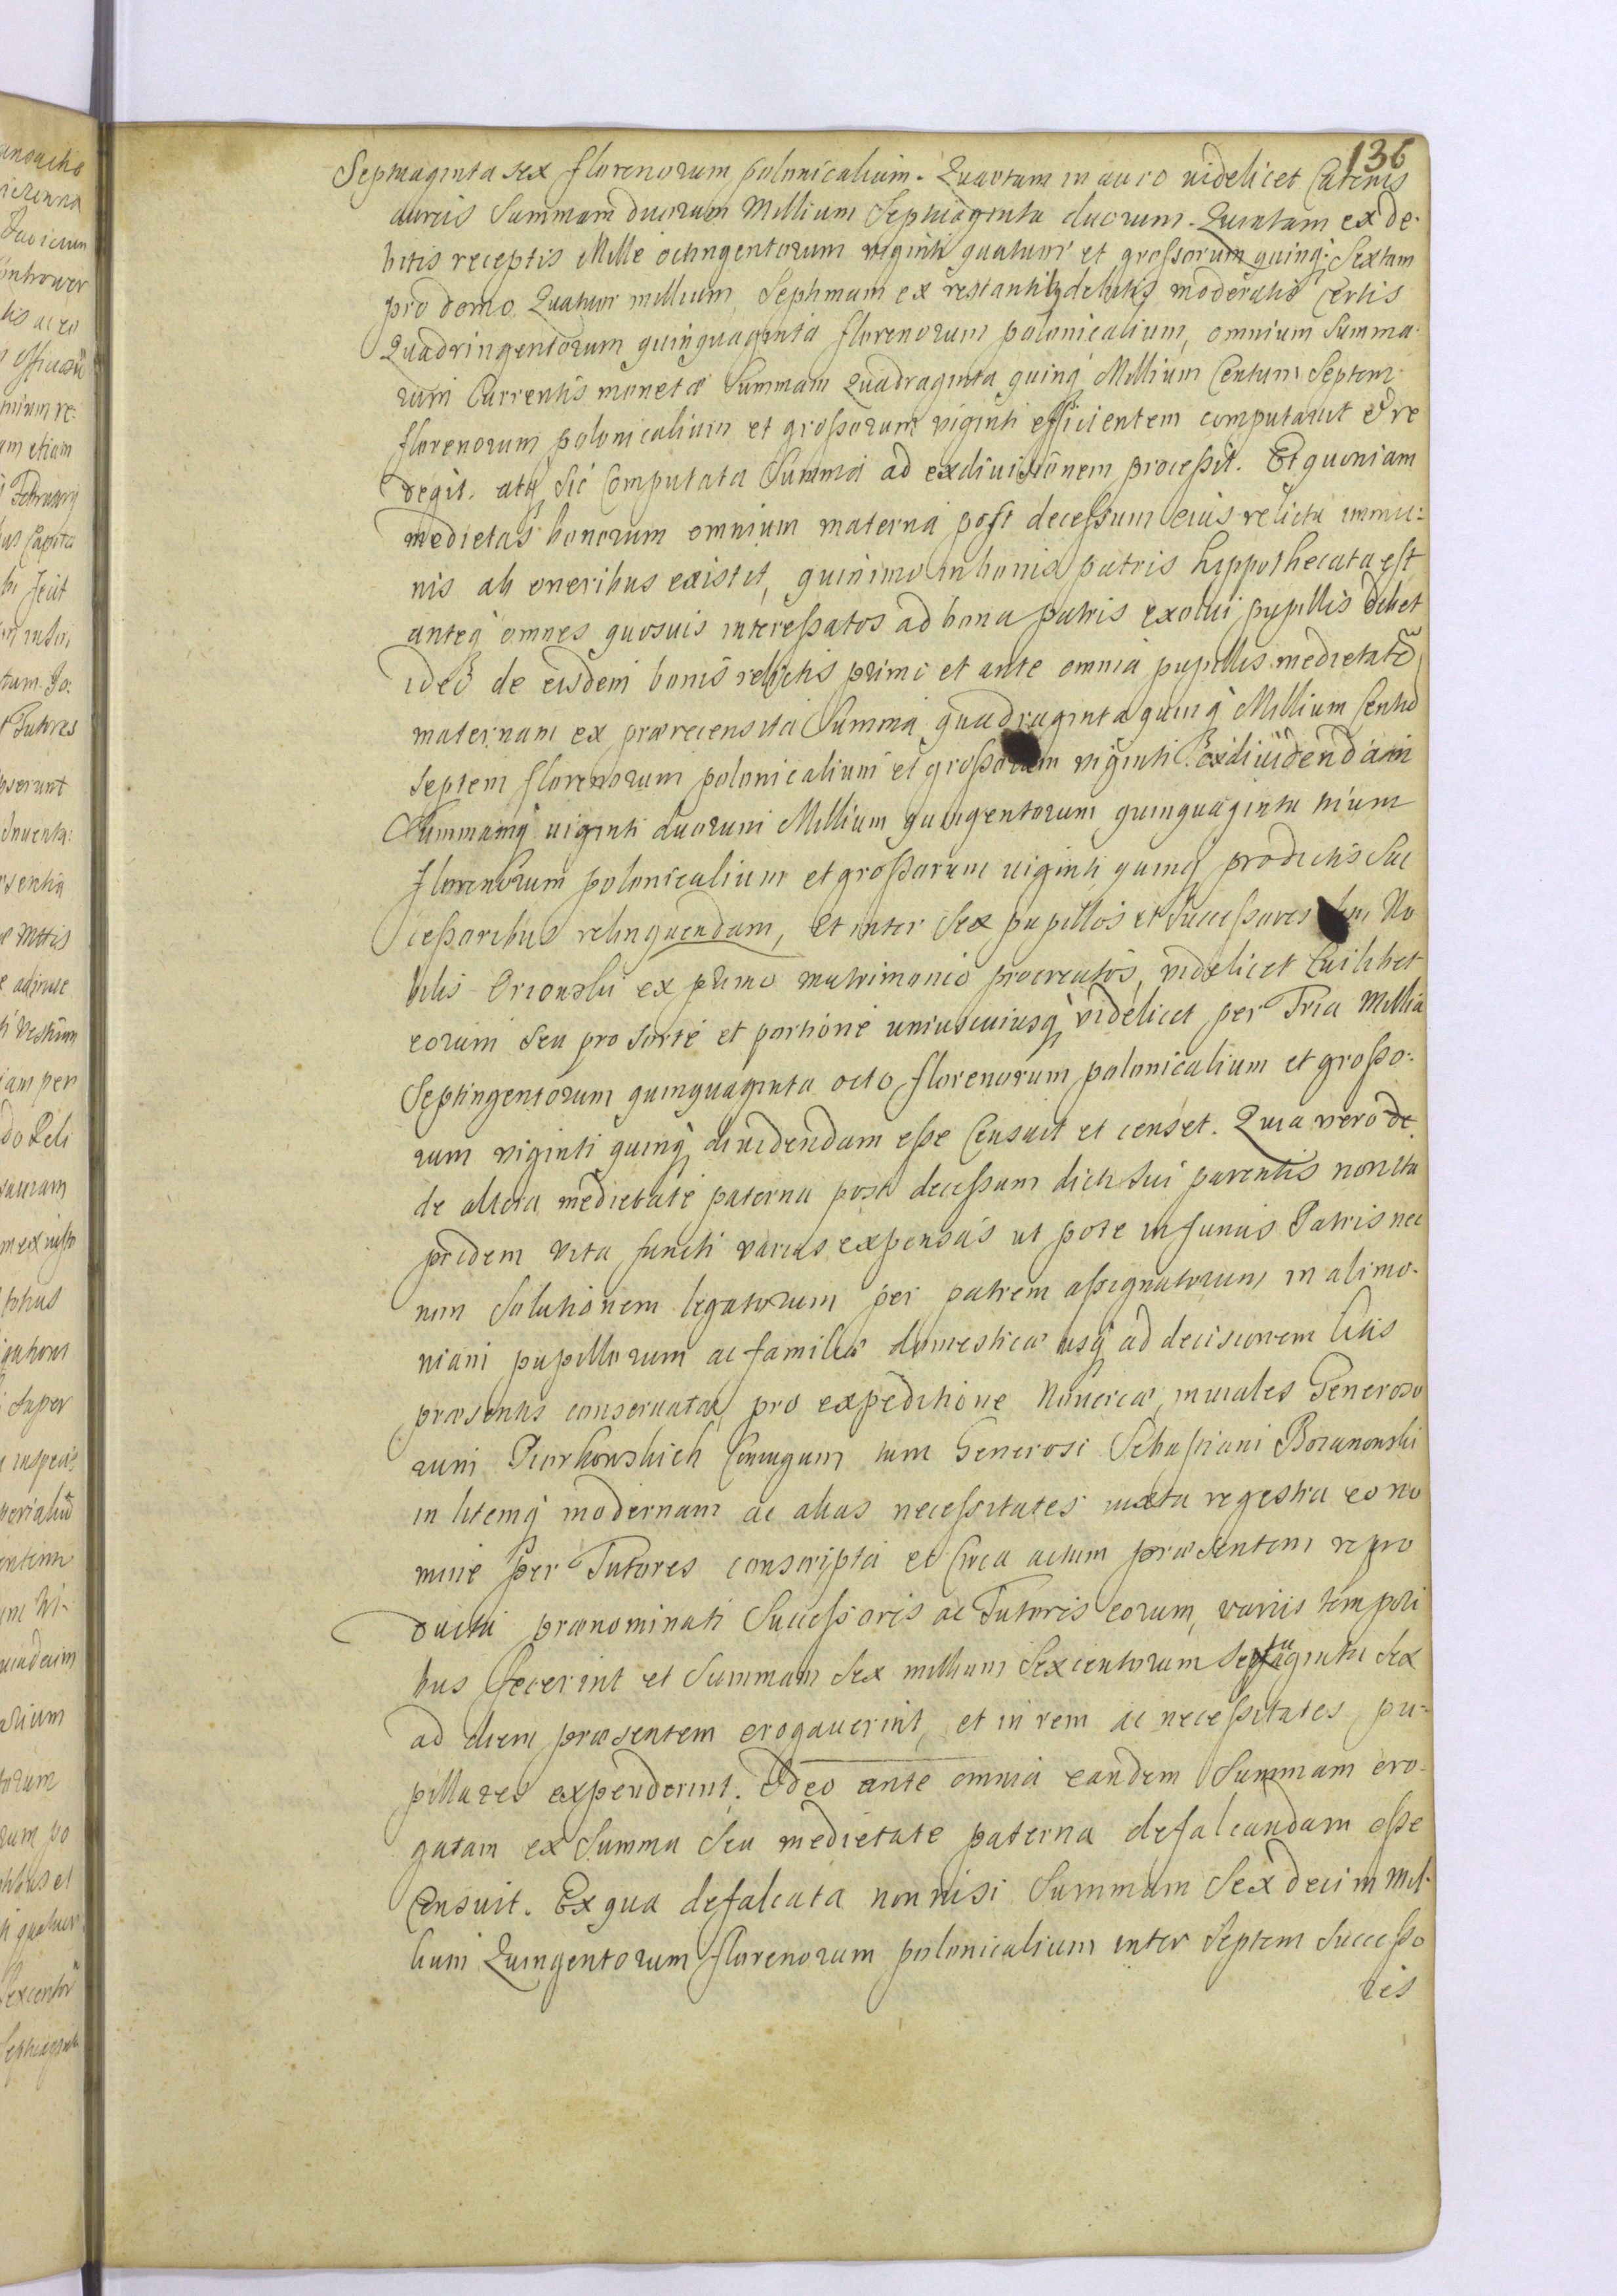 136
Septuaginta sex florenorum polonicalium. Quartam in auro uidelicet Catenis
aureis Summam duorum Millium Septuaginta duorum. Quintam ex de-
bitis receptis Mille octingentorum viginti quatuor et grossorum quinq; Sextam
pro domo Quatuor millium, Septimam ex restantibus debitis moderatis Certis
Quadringentorum quinquaginta florenorum polonicalium, omnium Summa
rum Currentis monetæ Summam Quadraginta quinq Millium Centum Septem
florenorum polonicalium et grossorum viginti efficientem computauit et re
degit. atq sic Computata Summa ad exdiuisionem processit. Et quoniam
medietas bonorum omnium materna post decessum eius relicta immu:
nis ab oneribus existit, quinimo in bonis patris hippothecata est
anteq omnes quosuis interessatos ad bona patris exolui pupillis debet
ideo de eisdem bonis relictis primo et ante omnia pupillis medietatē
maternam ex prærecensita Summa quadraginta quinq Millium Centū
septem florenorum polonicalium et grossorum viginti exdiuidendam
Summamq uiginti duorum Millium quingentorum quinquaginta trium
florenorum polonicalium et grossorum uiginti quinq prædictis Suc
cessoribus relinquendam, et inter Sex pupillos et Successores olim No
bilis Orionski ex primo matrimonio procreatos, videlicet Cuilibet
eorum seu pro sorte et portione uniuscuiusq videlicet per Tria Millia
Septingentorum quinquaginta octo florenorum polonicalium et grosso:
rum viginti quinq diuidendam esse Censuit et censet. Quia vero de
de altera medietate paterna post decessum dicti sui parentis non ita
pridem vita functi varias expensas ut pote in funus Patris nec
non Solutionem legatorum per patrem assignatorum, in alimo-
niam pupillorum ac familiæ domesticæ usq ad decisionem litis
præsentis conseruatæ, pro expeditione Nouercæ, murales Generoso
rum Piorkowskich Coniugum tum Generosi Sebastiani Boranowski
in litemq modernam ac alias necessitates iuxta regestra eo no
mine per Tutores conscripta et Circa actum præsentem repro
ducta prænominati Successoris ac Tutoris eorum, variis tempori
bus fecerint et Summam Sex millium Sexcentorum Septuaginta Sex
ad diem præsentem erogauerint, et in rem ac necessitates pu-
pillares expenderint. Ideo ante omnia eandem Summam ero-
gatam ex Summa Seu medietate paterna defalcandam esse
Censuit. Ex qua defalcata non nisi Summam Sexdecim Mil-
lium Quingentorum florenorum polonicalium inter Septem Successo
res